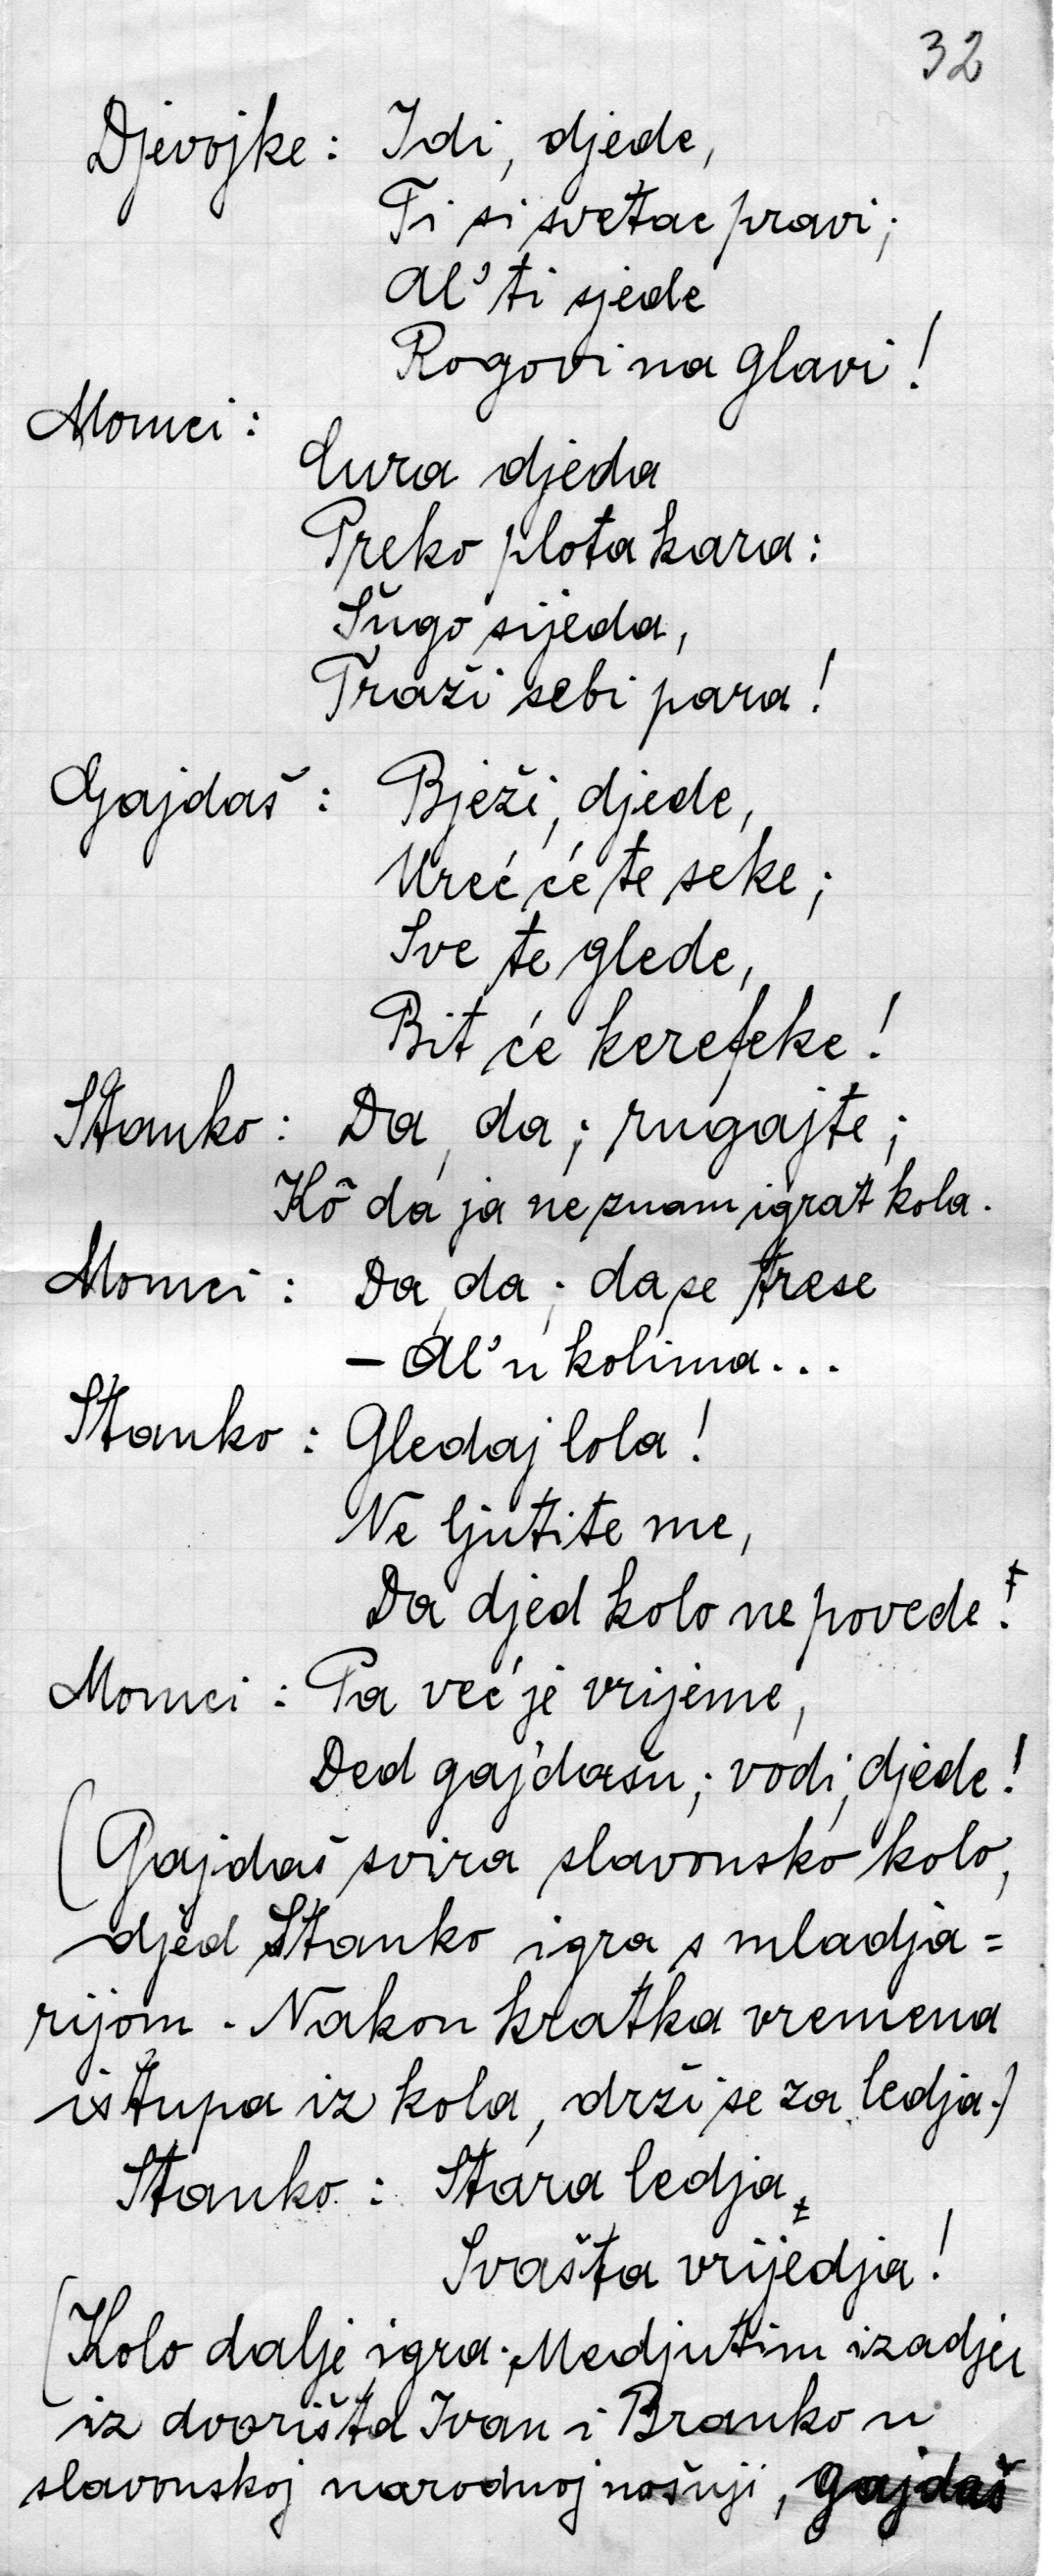 32
Djevojke: Idi, djede,
Ti si svetac pravi;
Al' ti sjede
Rogovi na glavi!
Momci:
Cura djeda
Preko plota kara:
Šugo sijeda,
Traži sebi para!
Gajdaš: Bježi, djede,
Ureć će te seke;
Sve te glede,
Bit će kerefeke!
Stanko: Da, da; rugajte;
Kô da ja ne znam igrat kola.
Momci: Da, da; da se trese
– Al' u kolima...
Stanko: Gledaj lola!
Ne ljutite me,
Da djed kolo ne povede!
Momci: Pa već je vrijeme,
Ded gajdašu; vodi, djede!
(Gajdaš svira slavonsko kolo,
djed Stanko igra s mladja=
rijom. Nakon kratka vremena
istupa iz kola, drži se za ledja.)
Stanko: Stara ledja
Svašta vrijedja!
(Kolo dalje igra. Medjutim izadju
iz dvorišta Ivan i Branko u
slavonskoj narodnoj nošnji, gajdaš